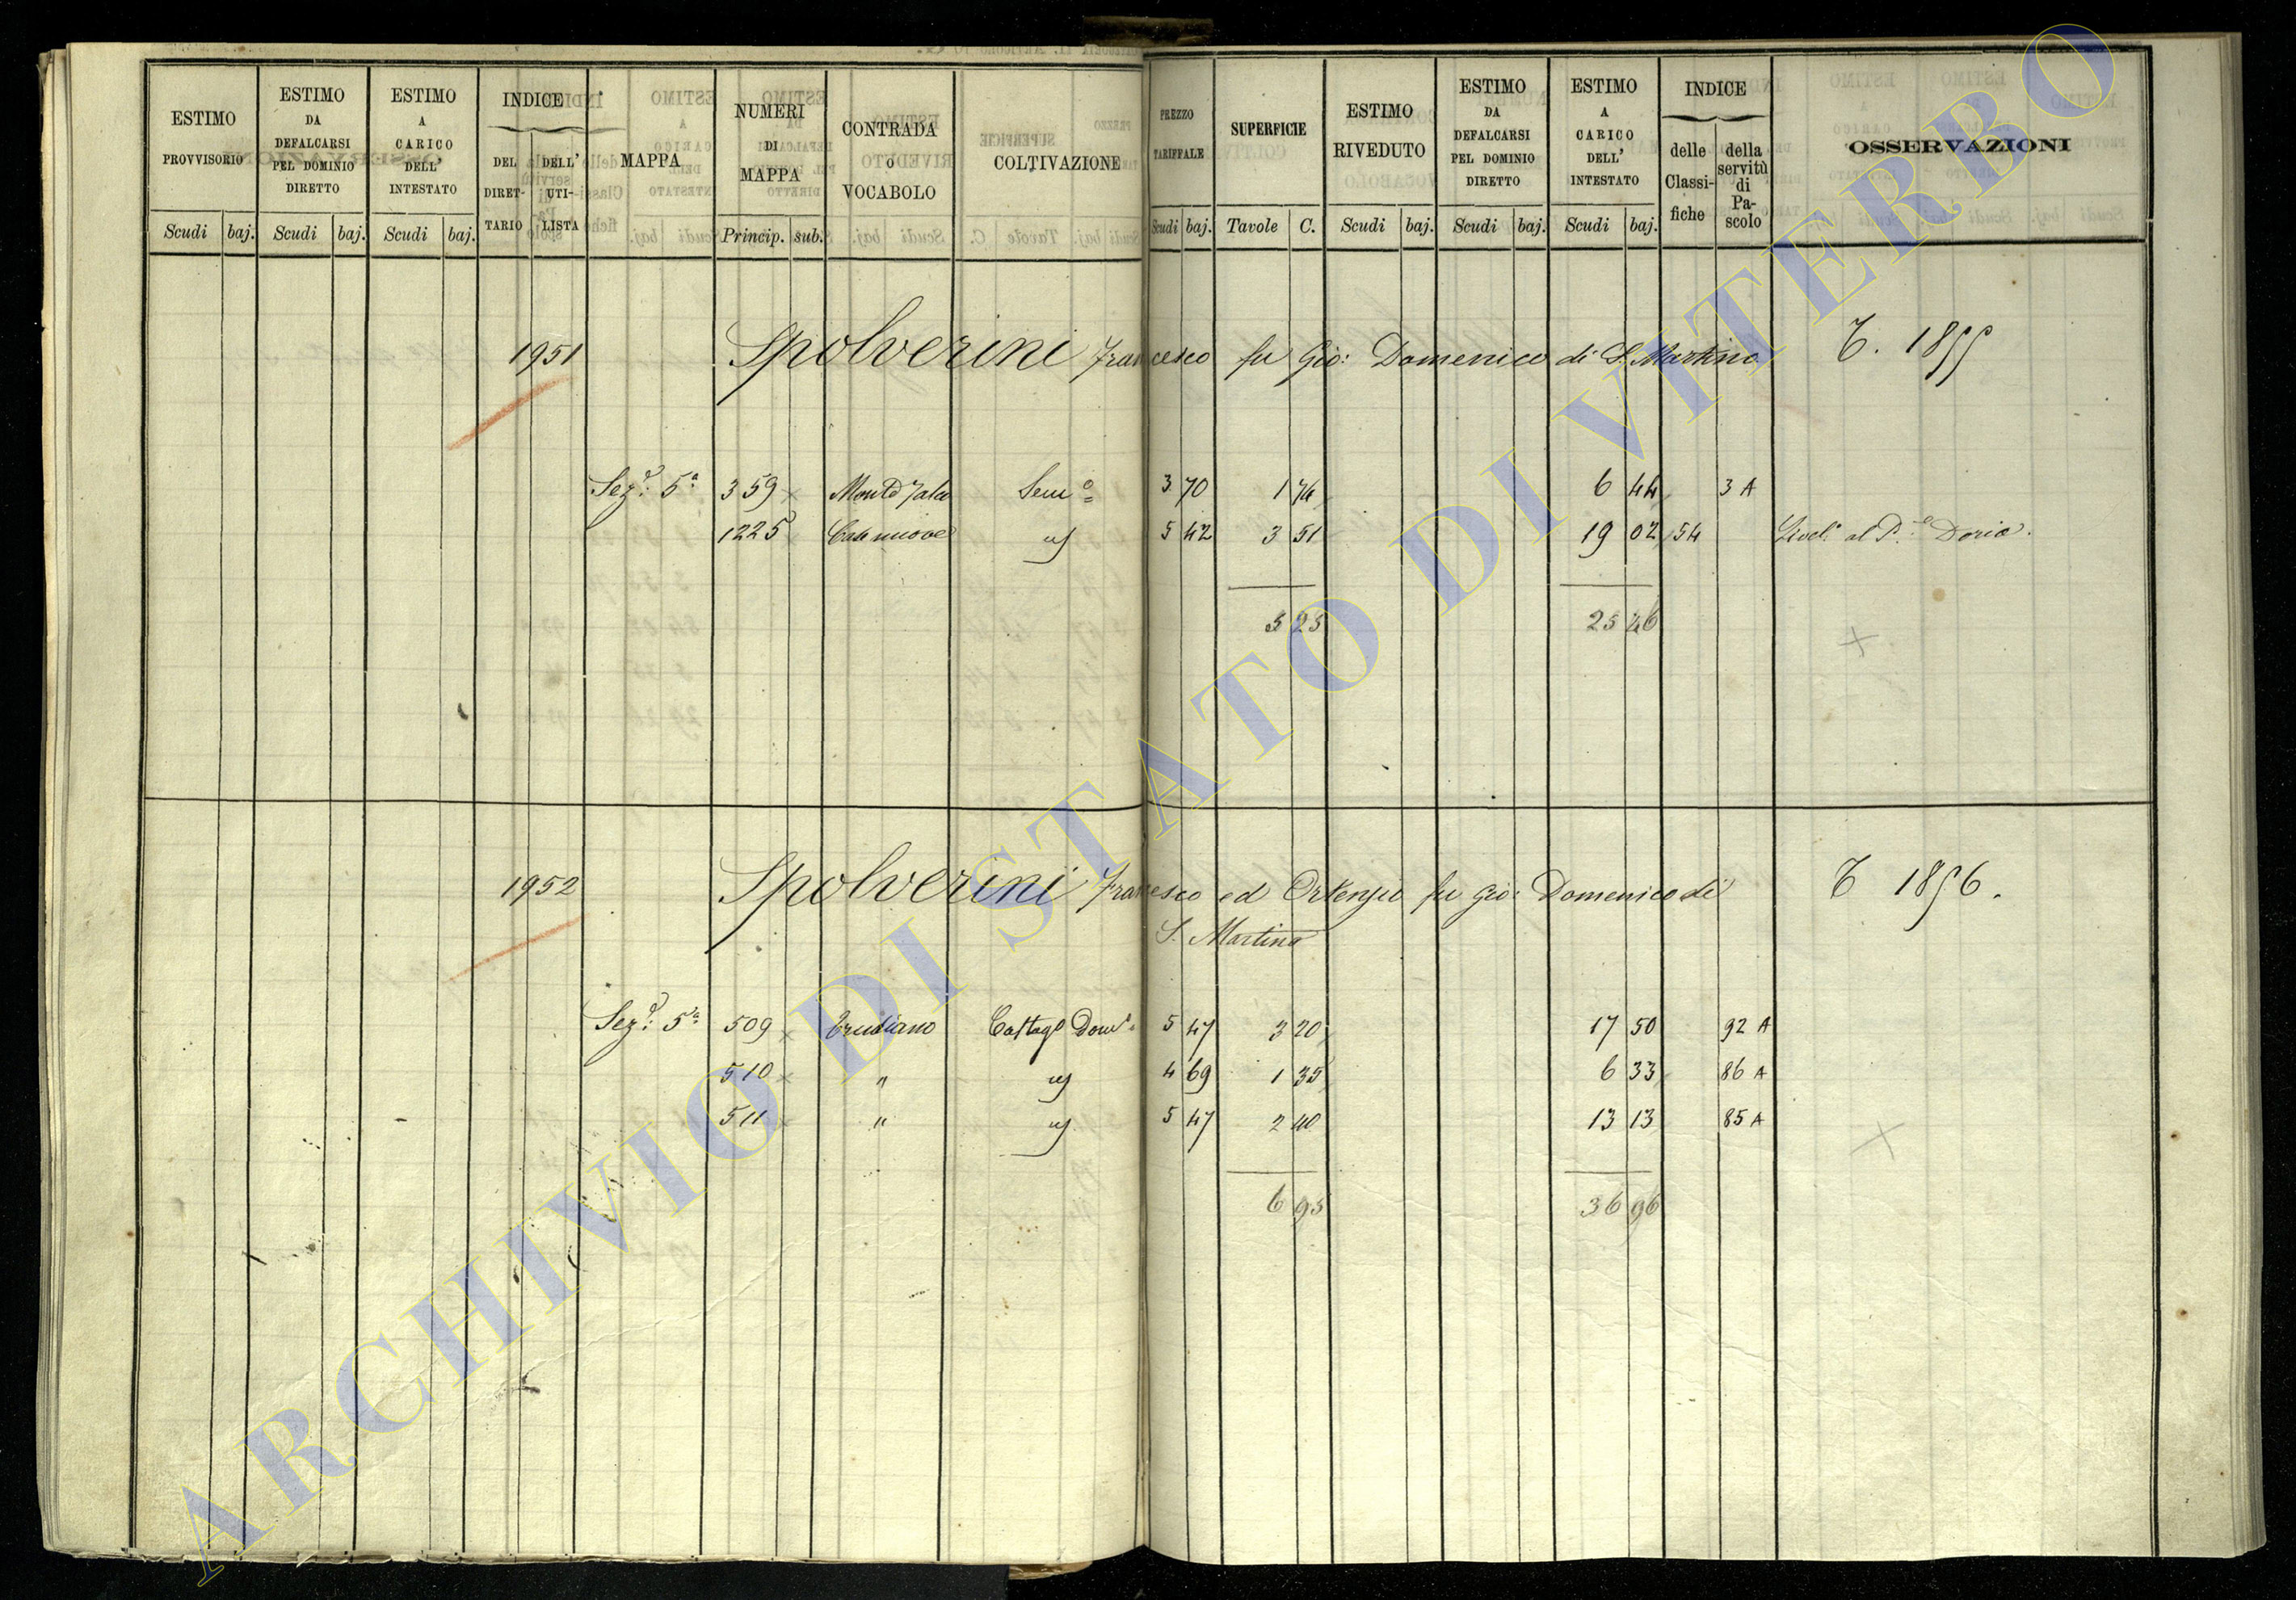 ESTIMO PROVVISORIO
ESTIMO DA DEFALCARSI PEL DOMINIO DIRETTO
ESTIMO A CARICO DELL' INTESTATO
INDICE
DEL DIRET- TARIO
DELL' UTI- LISTA
MAPPA
NUMERI DI MAPPA
CONTRADA O VOCABOLO
COLTIVAZIONE
PREZZO TARIFFALE
SUPERFICIE
ESTIMO RIVEDUTO
ESTIMO DA DEFALCARSI PEL DOMINIO DIRETTO
ESTIMO A CARICO DELL' INTESTATO
INDICE
delle Classi- fiche
della servitù di Pa- scolo
OSSERVAZIONI
Scudi baj. Scudi baj. Scudi baj. Princip. sub. Scudi baj. Tavole C. Scudi baj. Scudi baj. Scudi baj.
1951 Spolverini Francesco fu Gio: Domenico di S. Martino
Sez.e 5a 359 Sem.o 3 70 1 74 6 44 3 A
1225 Casenuove 5 42 3 51 19 02 54 Livel. al P.e Doria.
5 25 25 46
1952 Spolverini Francesco ed Ortenzio fu Gio: Domenico di
S. Martino
Sez.e 5a 509 Castag Dom. 5 47 3 20 17 50 92 A
510 " 4 69 1 35 6 33 86 A
511 " 5 47 2 40 13 13 85 A
6 95 36 96
ARCHIVIO DI STATO DI VITERBO